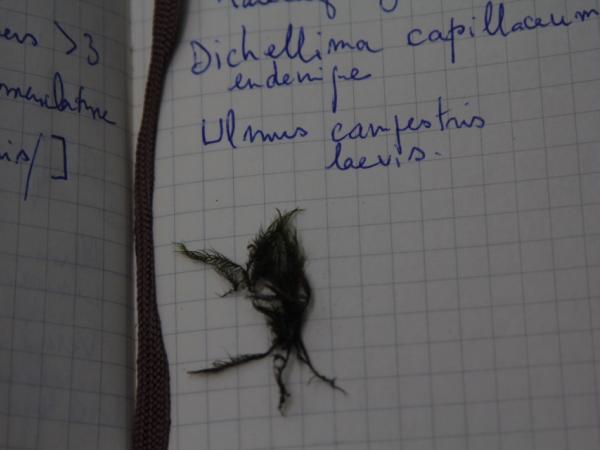 ers >3
menclature
is/]
Dichellima capillaceum
endemique
Ulmus campestris
laevis.